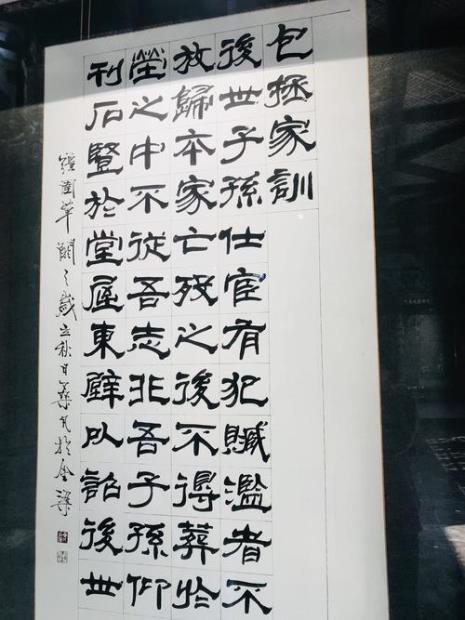 包拯家訓
後世子孫仕宦有犯贓濫者不
放歸本家亡歿之後不得葬於
塋之中不從吾志非吾子孫仰
刊石豎於堂屋東壁以詔後世
之歲立秋日 於金